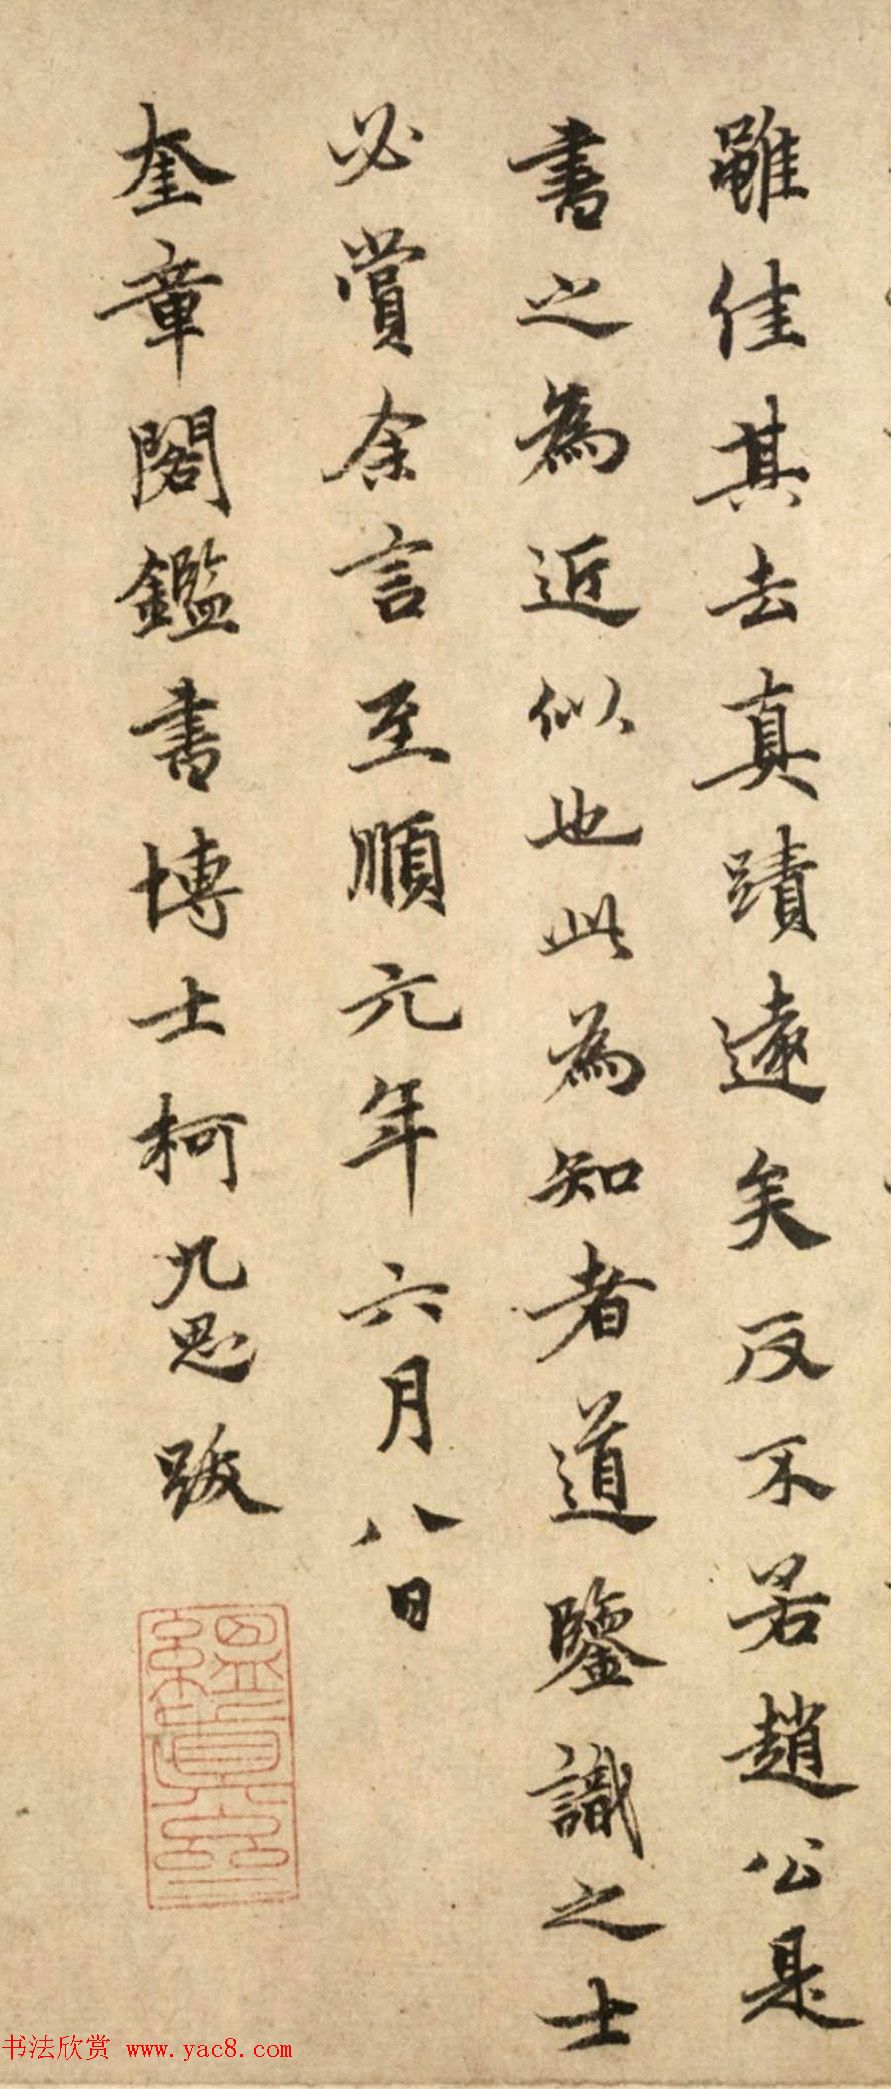 雖佳其去真蹟遠矣反不若趙公是
書之為近似也此為知者道鑒識之士
必賞余言至順元年六月八日
奎章閣鑑書博士柯九思跋
緼真齋
书法欣赏 www.yac8.com